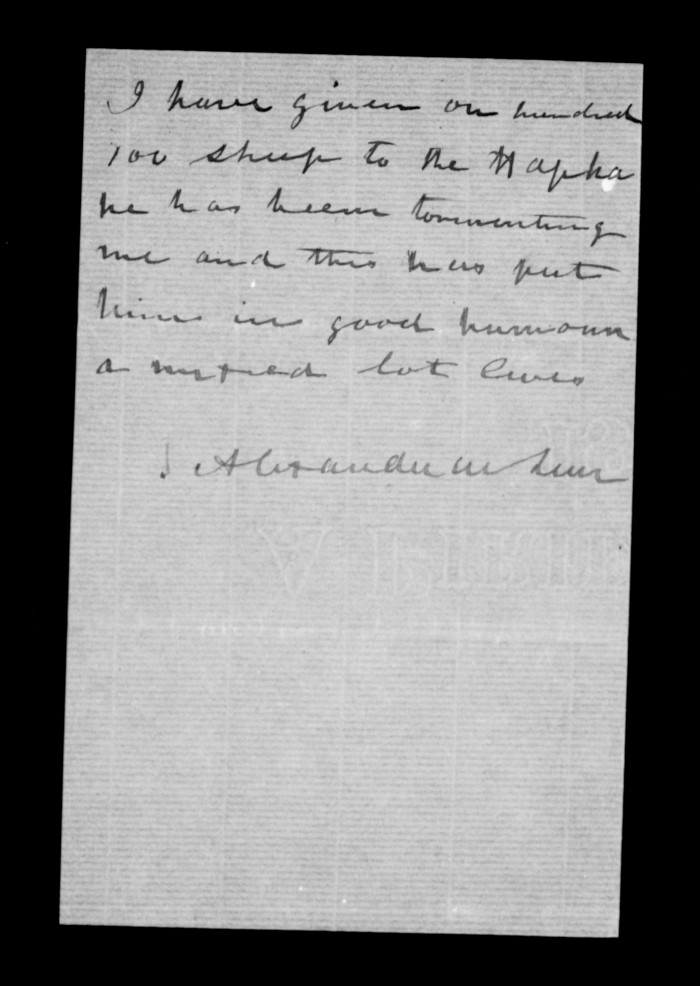 I have given on hundred
100 sheep to the Hapuka
he has been tormenting
me and this has put
him in good humour
a mixed lot Ewes
Alexander